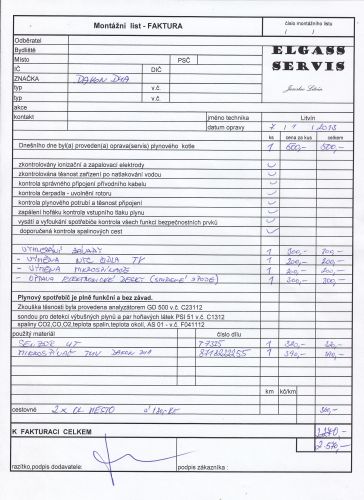 Montážní list - FAKTURA
číslo montážního listu
/ /
Odběratel
Bydliště
Místo PSČ
IČ DIČ
ZNAČKA DAKON DUA
typ v.č.
typ v.č.
akce
ELGASS
SERVIS
Jaroslav Litvín
kontakt jméno technika Litvín
datum opravy 7 / 1 / 2013
ks cena za kus celkem
Dnešního dne byl(a) proveden(a) oprava(servis) plynového kotle 1 500,- 500,-
zkontrolovány ionizační a zapalovací elektrody
zkontrolována těsnost zařízení po natlakování vodou
kontrola správného připojení přívodního kabelu
kontrola čerpadla - uvolnění rotoru
kontrola plynového potrubí a těsnost připojení
zapálení hořáku kontrola vstupního tlaku plynu
vysátí a vyfoukání spotřebiče kontrola všech funkcí bezpečnostních prvků
doporučená kontrola spalinových cest
VYHLEDÁNÍ ZÁVADY 1 300,- 300,-
- VÝMĚNA NTC ČIDLA TV 1 200,- 200,-
- VÝMĚNA MIKROSPÍNAČE 1 200,- 200,-
- OPRAVA ELEKTRONICKÉ DESKY 1 300,- 300,-
Plynový spotřebič je plně funkční a bez závad.
Zkouška těsnosti byla provedena analyzátorem GD 500 v.č. C23112
sondou pro detekci výbušných plynů a par hořlavých látek PSI 51 v.č. C1312
spaliny CO2,CO,O2,teplota spalin,teplota okolí, AS 01 - v.č. F041112
použitý materiál číslo dílu
SENZOR UT T7335 1 320,- 320,-
MIKROSPÍNAČ TUV DAKON DUA 87162222255 1 390,- 390,-
km kč/km
cestovné 2 x KL. MĚSTO
K FAKTURACI CELKEM
2 570,-
razítko,podpis dodavatele: podpis zákazníka :